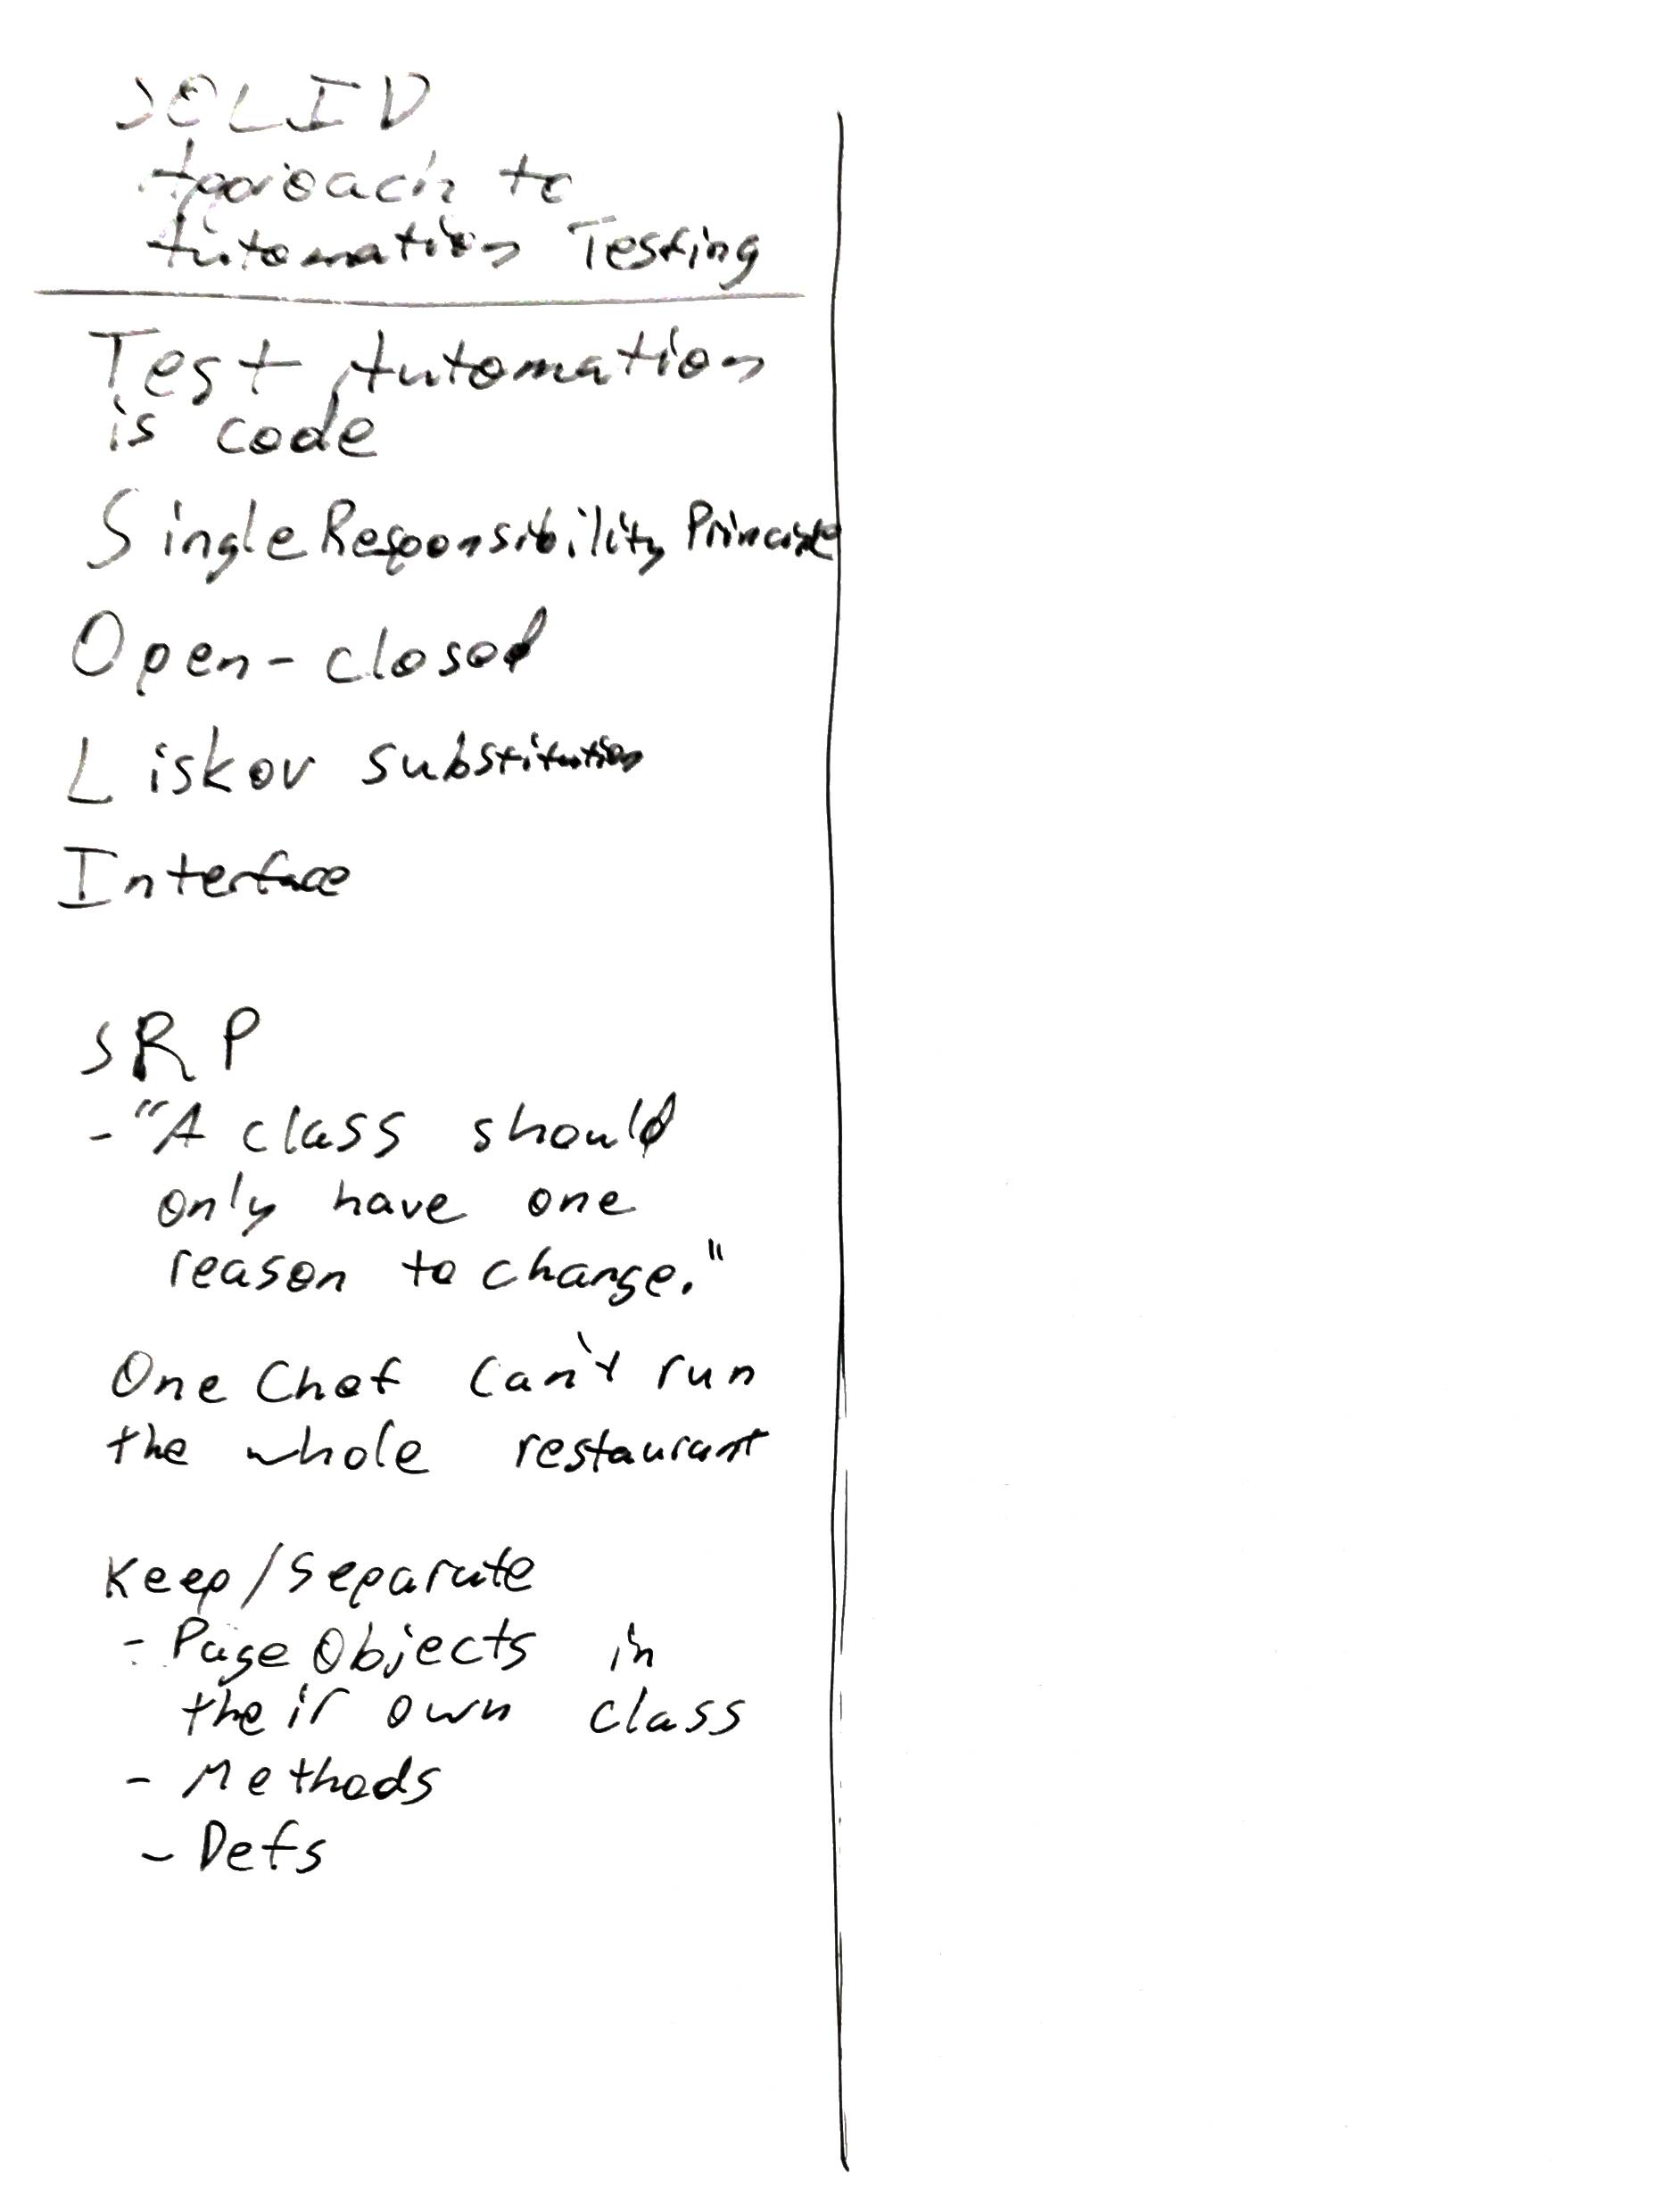 SOLID
Approach to
Automation Testing
Test Automation
is code
Single Responsibility Principle
Open-closed
Liskov substitution
Interface
SRP
- "A class should
only have one
reason to change."
One Chef can't run
the whole restaurant
Keep/Separate
- Page Objects in
their own class
- Methods
- Defs